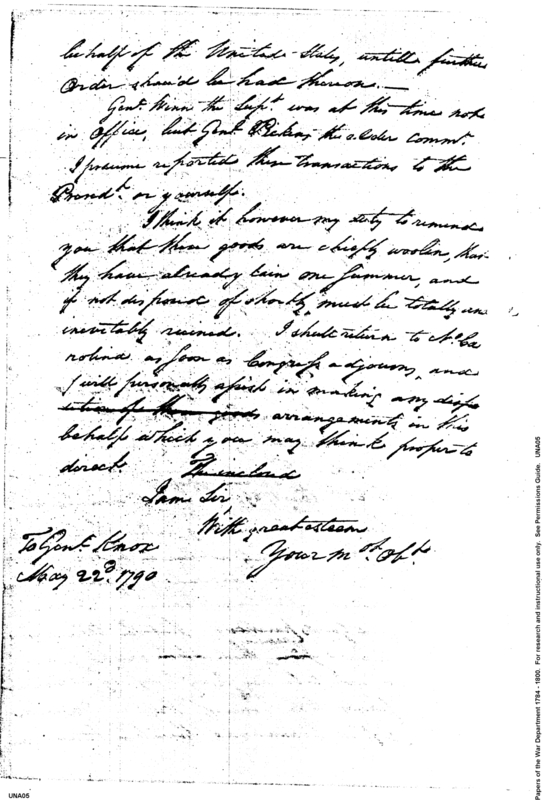 behalf of the United States, untill further
Order should be had thereon.—
Genl. Winn the Supt. was at this time not
in Office, but Genl. Pickens the older Commr.
I presume reported these transactions to the
Presidt. or yourself.
I think it however my duty to remind
you that these goods are chiefly woolin, that
they have already lain one Summer, and
if not disposed of shortly, must be totally and
inevitably ruined. I shall return to No. Ca
rolina as soon as Congress adjourns, and
I will personally assist in making any dispo
sition of these goods arrangements in this
behalf which you may think proper to
direct The inclosd
I am Sir
With great esteem
Your mot. obt.
To Genl. Knox
May 22d. 1790
UNA05
Papers of the War Department 1784 - 1800. For research and instructional use only. See Permissions Guide. UNA05